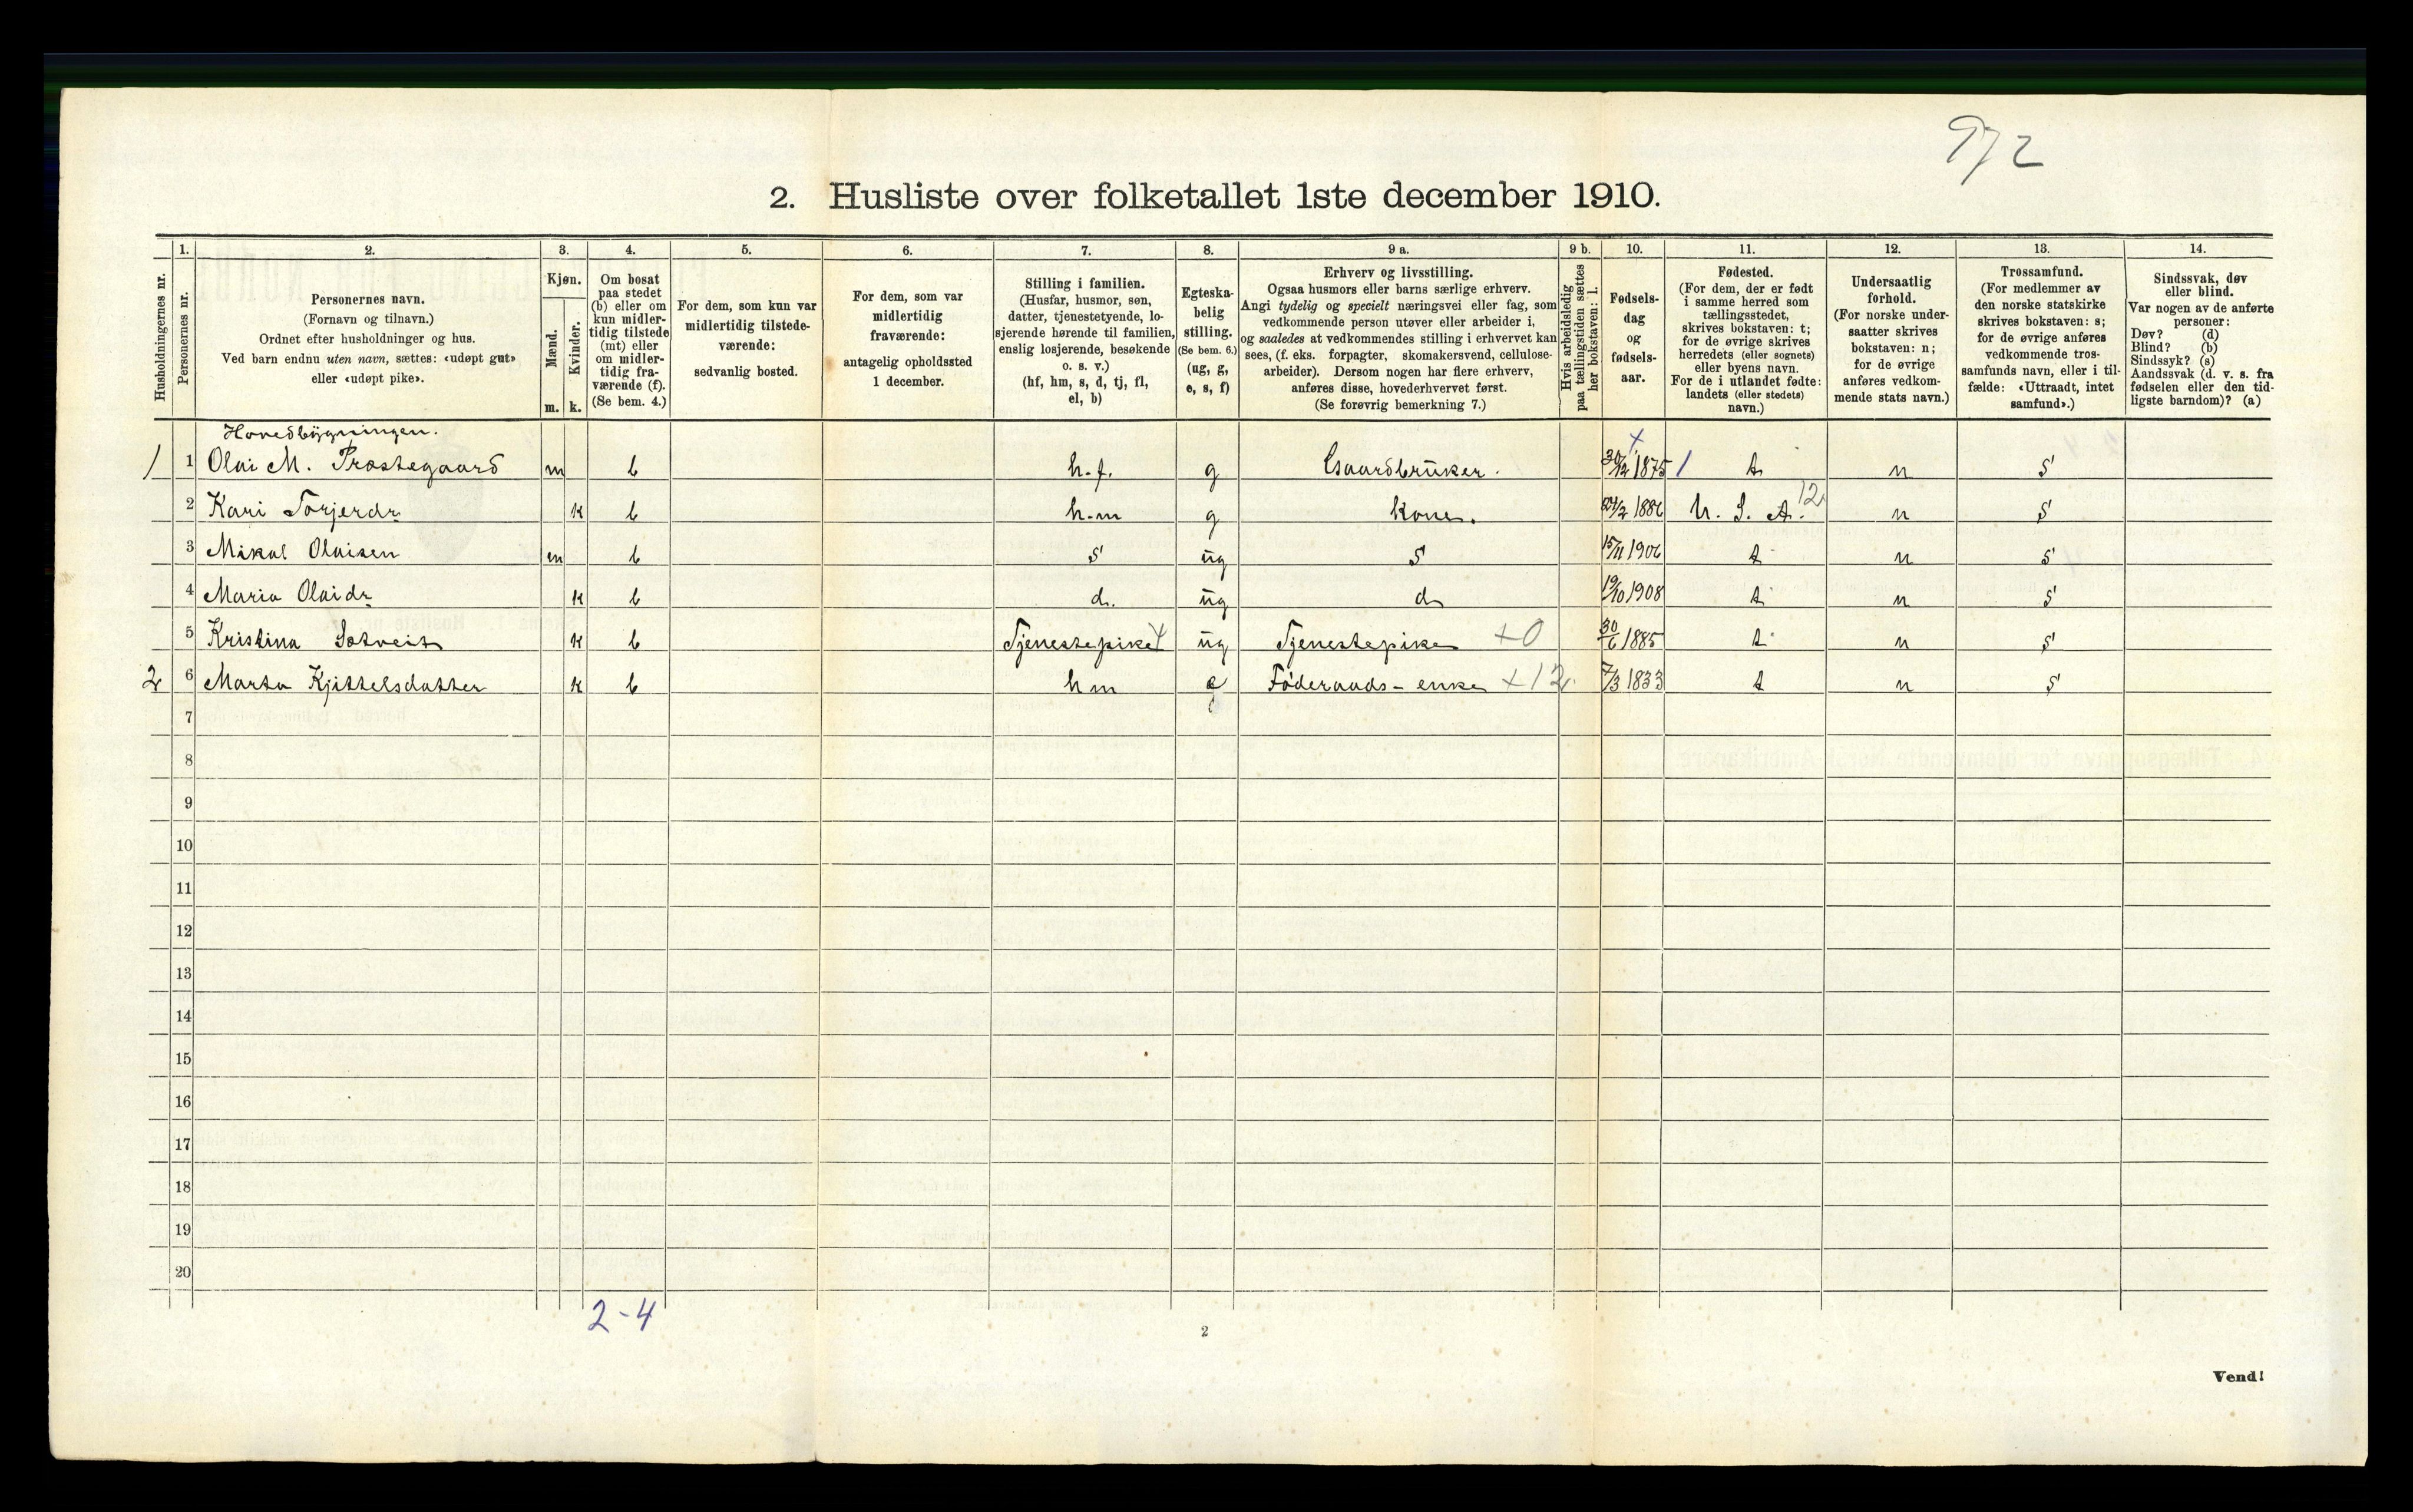 972
2. Husliste over folketallet 1ste december 1910.
1. 2. 3. 4. 5. 6. 7. 8. 9 a. 9 b. 10. 11. 12. 13. 14.
Husholdningernes nr.
Personernes nr.
Personernes navn.
(Fornavn og tilnavn.)
Ordnet efter husholdninger og hus.
Ved barn endnu uten navn, sættes: «udøpt gut»
eller «udøpt pike».
Kjøn.
Mænd.
Kvinder.
m. k.
Om bosat
paa stedet
(b) eller om
kun midler-
tidig tilstede
(mt) eller
om midler-
tidig fra-
værende (f).
(Se bem. 4.)
For dem, som kun var
midlertidig tilstede-
værende:
sedvanlig bosted.
For dem, som var
midlertidig
fraværende:
antagelig opholdssted
1 december.
Stilling i familien.
(Husfar, husmor, søn,
datter, tjenestetyende, lo-
sjerende hørende til familien,
enslig losjerende, besøkende
o. s. v.)
(hf, hm, s, d, tj, fl,
el, b)
Egteska-
belig
stilling.
(Se bem. 6.)
(ug, g,
e, s, f)
Erhverv og livsstilling.
Ogsaa husmors eller barns særlige erhverv.
Angi tydelig og specielt næringsvei eller fag, som
vedkommende person utøver eller arbeider i,
og saaledes at vedkommendes stilling i erhvervet kan
sees, (f. eks. forpagter, skomakersvend, cellulose-
arbeider). Dersom nogen har flere erhverv,
anføres disse, hovederhvervet først.
(Se forøvrig bemerkning 7.)
Hvis arbeidsledig
paa tællingstiden sættes
her bokstaven: l.
Fødsels-
dag
og
fødsels-
aar.
Fødested.
(For dem, der er født
i samme herred som
tællingsstedet,
skrives bokstaven: t;
for de øvrige skrives
herredets (eller sognets)
eller byens navn.
For de i utlandet fødte:
landets (eller stedets)
navn.)
Undersaatlig
forhold.
(For norske under-
saatter skrives
bokstaven: n;
for de øvrige
anføres vedkom-
mende stats navn.)
Trossamfund.
(For medlemmer av
den norske statskirke
skrives bokstaven: s;
for de øvrige anføres
vedkommende tros-
samfunds navn, eller i til-
fælde: «Uttraadt, intet
samfund».)
Sindssvak, døv
eller blind.
Var nogen av de anførte
personer:
Døv? (d)
Blind? (b)
Sindssyk? (s)
Aandssvak (d. v. s. fra
fødselen eller den tid-
ligste barndom)? (a)
Hovedbygningen.
1 1 Olai M. Præstegaard m b h.f. g Gaardbruker. 30/12 1875 1 t n s
2 Kari Torjerdr k b h.m g kone. 24/2 1886 U. S. A. 12 n s
3 Mikal Olaisen m b s ug s 15/11 1906 t n s
4 Maria Olaidr k b d. ug d 19/10 1908 t n s
5 Kristina Søtveit k b Tjenestepike ug Tjenestepike +0 30/6 1885 t n s
2 6 Marta Kjittelsdatter k b hm e Føderaads-enke +12 7/3 1833 t n s
7
8
9
10
11
12
13
14
15
16
17
18
19
20
2-4
2
Vend!